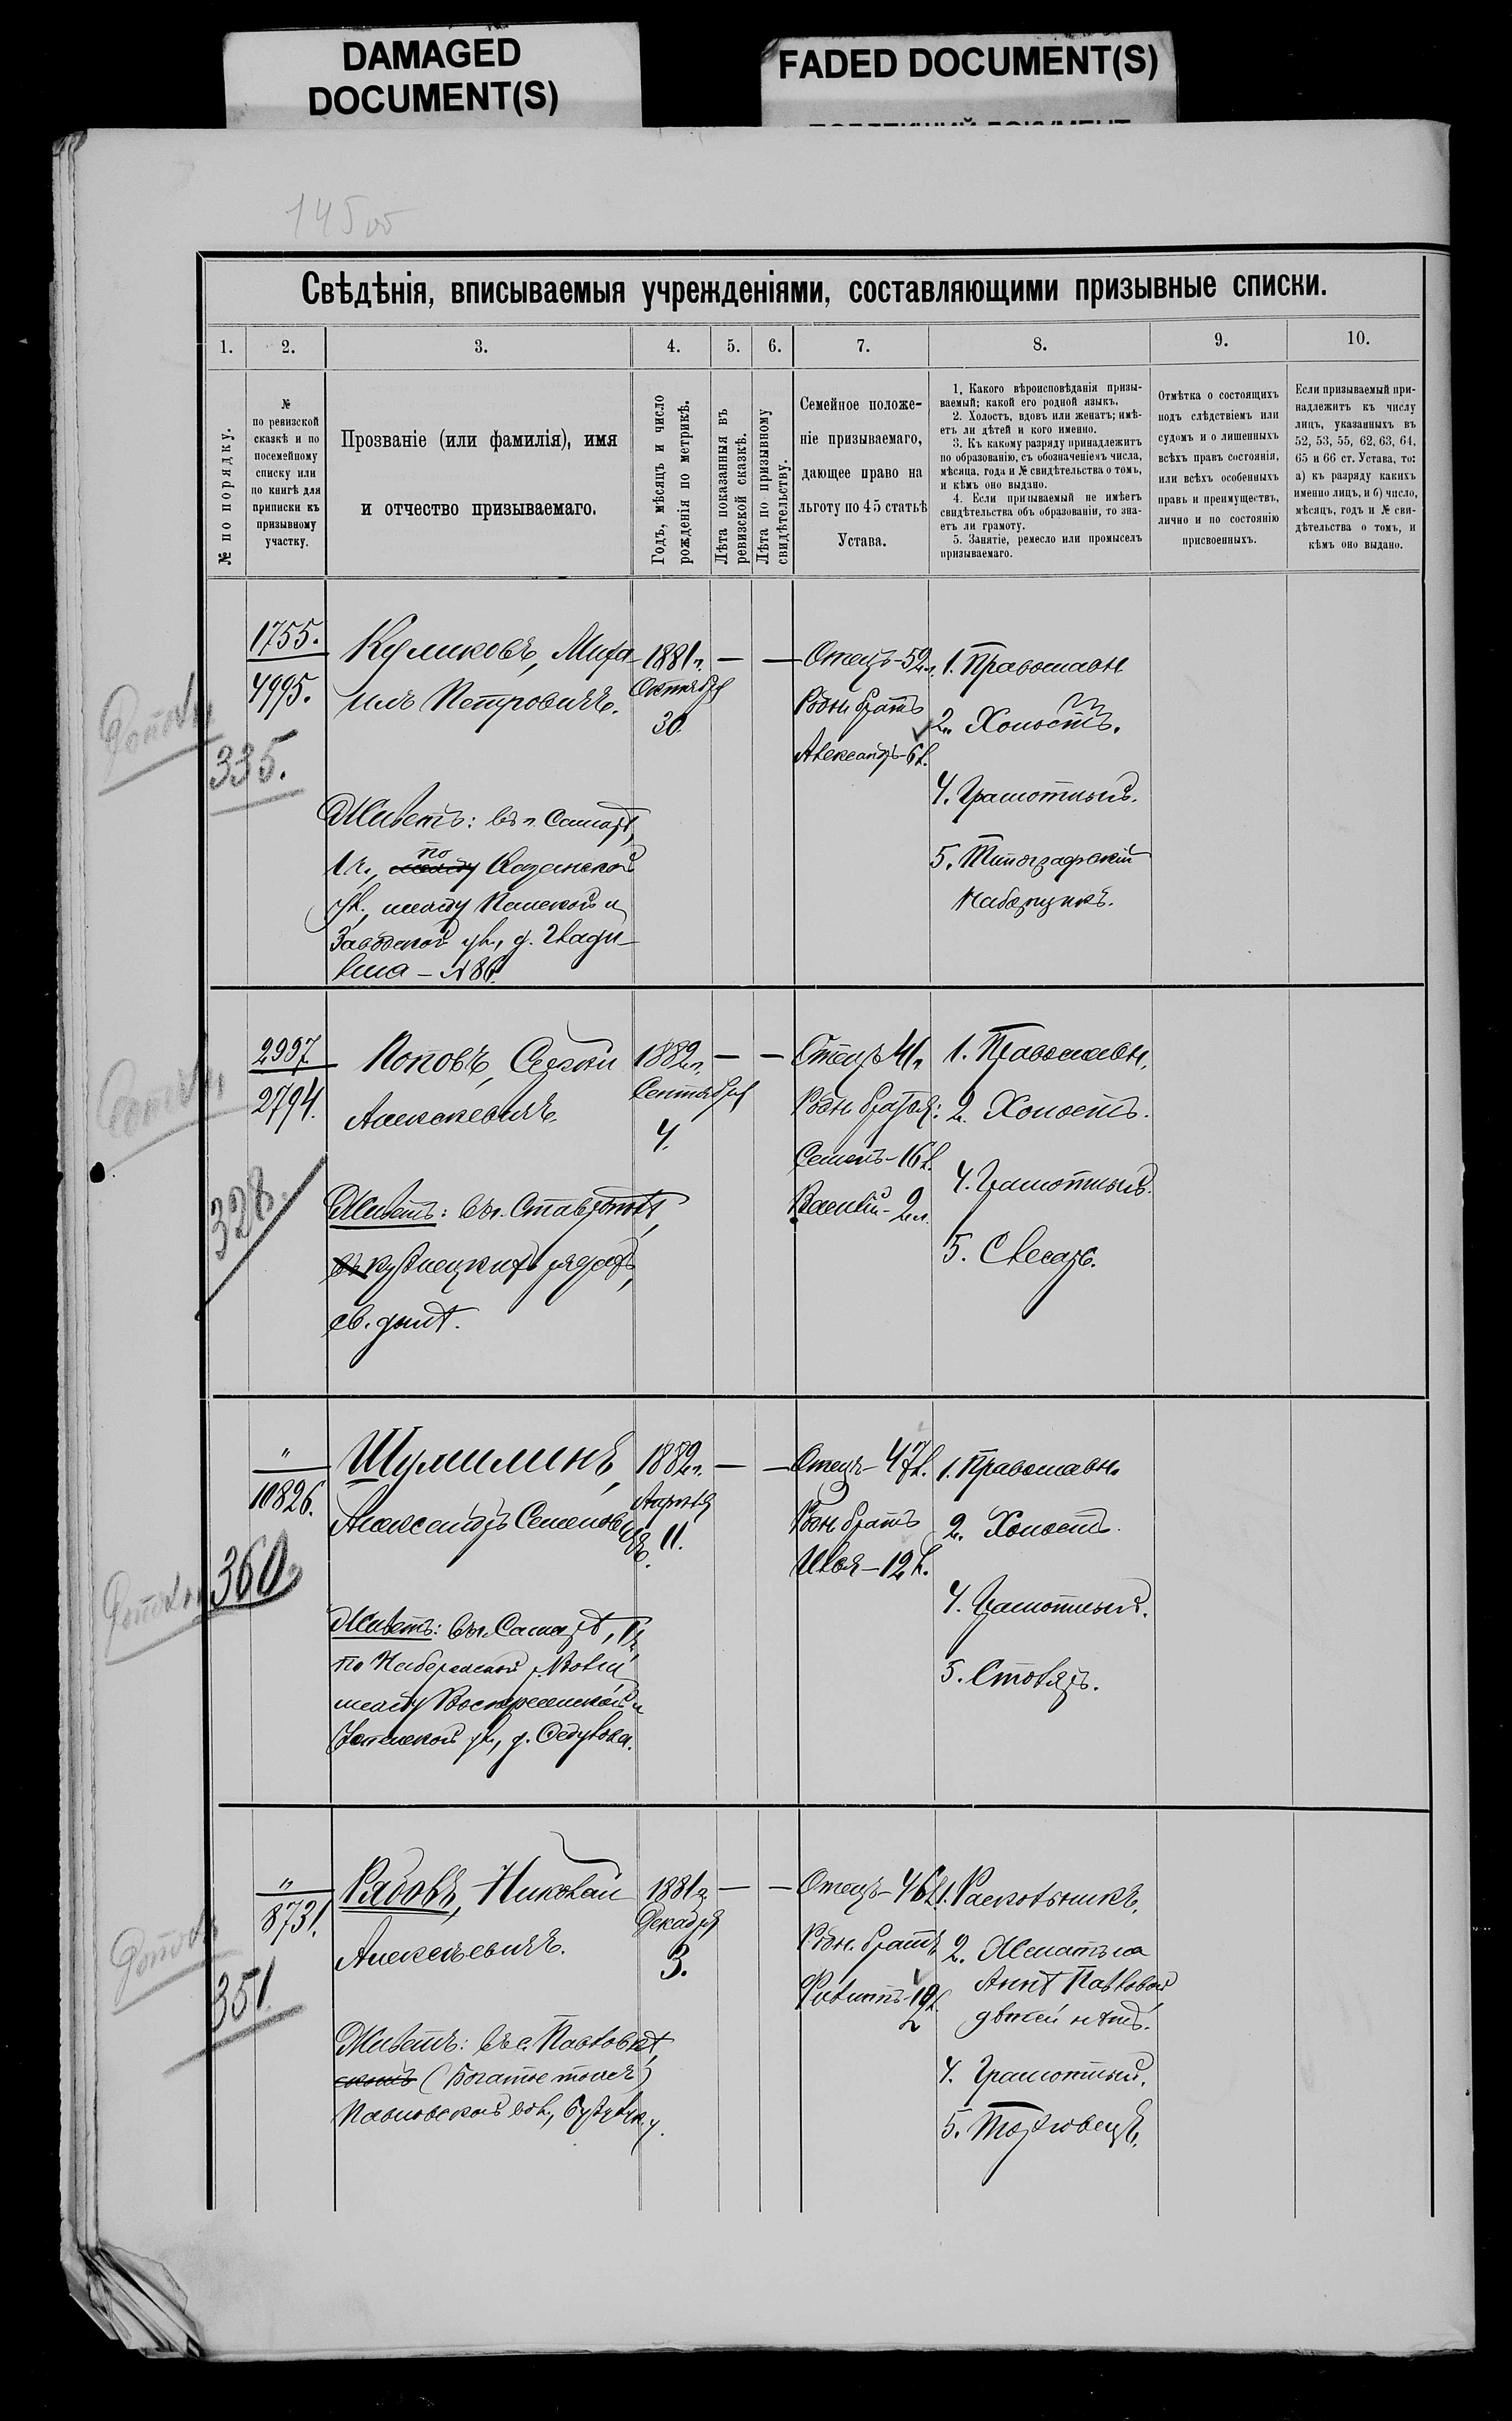 DAMAGED
DOCUMENT(S)
FADED DOCUMENT(S)
145 об
Свѣдѣнія, вписываемыя учрежденіями, составляющими призывные списки.
1.
2.
3.
4.
5.
6.
7.
8.
9.
10.
№ по порядку.
№
по ревизской
сказкѣ и по
посемейному
списку или
по книгѣ для
приписки къ
призывному
участку.
Прозваніе (или фамилія), имя
и отчество призываемаго.
Годъ, мѣсяцъ и число
рожденія по метрикѣ.
Лѣта показанныя въ
ревизской сказкѣ.
Лѣта по призывному
свидѣтельству.
Семейное положе-
ніе призываемаго,
дающее право на
льготу по 45 статьѣ
Устава.
1. Какого вѣроисповѣданія призы-
ваемый; какой его родной языкъ.
2. Холостъ, вдовъ или женатъ; имѣ-
етъ ли дѣтей и кого именно.
3. Къ какому разряду принадлежитъ
по образованію, съ обозначеніемъ числа,
мѣсяца, года и № свидѣтельства о томъ,
и кѣмъ оно выдано.
4. Если призываемый не имѣетъ
свидѣтельства объ образованіи, то зна-
етъ ли грамоту.
5. Занятіе, ремесло или промыселъ
призываемаго.
Отмѣтка о состоящихъ
подъ слѣдствіемъ или
судомъ и о лишенныхъ
всѣхъ правъ состоянія,
или всѣхъ особенныхъ
правъ и преимуществъ,
лично и по состоянію
присвоенныхъ.
Если призываемый при-
надлежитъ къ числу
лицъ, указанныхъ въ
52, 53, 55, 62, 63, 64,
65 и 66 ст. Устава, то:
а) къ разряду какихъ
именно лицъ, и б) число,
мѣсяцъ, годъ и № сви-
дѣтельства о томъ, и
кѣмъ оно выдано.
335.
1755.
4995.
Куликовъ, Миха
илъ Петровичъ.
Живетъ: въ г. Самарѣ,
1 ч., по Казанской
ул., между Панской и
Заводской ул., д.
– № 86.
1881 г.
Октября
30.
—
—
Отецъ – 52 л.
Родн. братъ
Александръ – 6 л.
1. Православн.
2. Холостъ.
4. Грамотный.
5. Типографскій
наборщикъ.
328.
2997
2794.
Поповъ, Сергѣй
Алексѣевичъ.
Живетъ: въ г. Ставрополѣ,
въ кузнецкихъ рядахъ,
св. домъ.
1882 г.
Сентября
4.
—
—
Отецъ 41 л.
Родн. братья:
Семенъ – 16 л.
Василій – 2 л.
1. Православн.
2. Холостъ.
4. Грамотный.
5. Слесарь.
360
"
10826.
Шумилинъ,
Александръ Семенович
ъ.
Живетъ: въ г. Самарѣ, 1 ч.
по Набережной р. Волги,
между Воскресенской и
Успенской ул., д. Федулова.
1882 г.
Апрѣля
11.
—
—
Отецъ – 47 л.
Родн. братъ
Илья – 12 л.
1. Православн.
2. Холостъ.
4. Грамотный.
5. Столяръ.
351
"
8731.
Рябовъ, Николай
Алексѣевичъ.
Живетъ: въ с. Павловкѣ,
(Богатое тожъ)
Павловской вол., Бузулук. у.
1881 г.
Декабря
3.
—
—
Отецъ – 46 л.
Родн. братъ
Филиппъ – 19 л.
1. Раскольникъ.
2. Женатъ на
Аннѣ Павловой
дѣтей нѣтъ.
4. Грамотный.
5. Торговецъ.